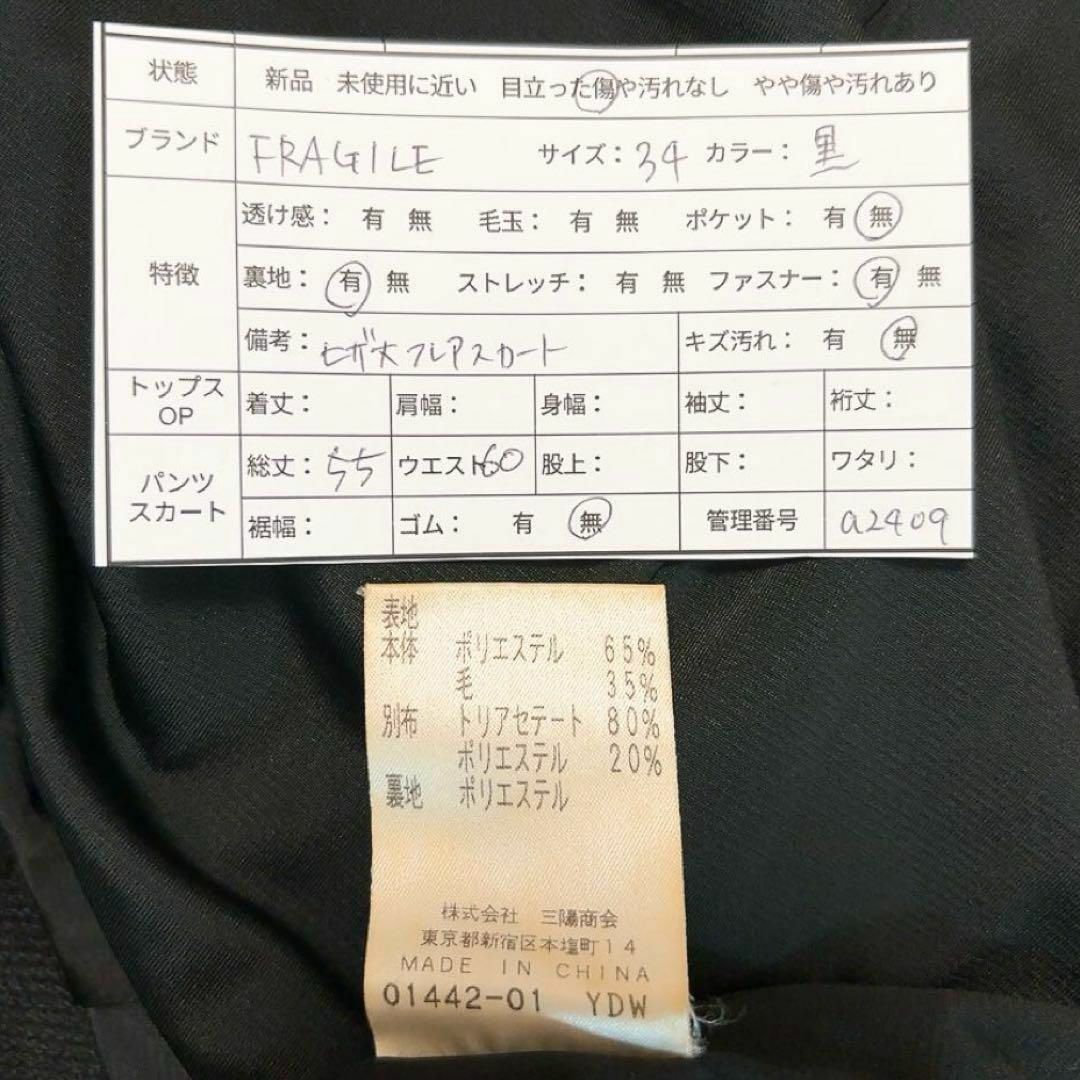 状態 新品 未使用に近い 目立った傷や汚れなし やや傷や汚れあり
ブランド FRAGILE サイズ： 34 カラー： 黒
特徴
透け感： 有 無 毛玉： 有 無 ポケット： 有 無
裏地： 有 無 ストレッチ： 有 無 ファスナー： 有 無
備考： ヒザ丈フレアスカート キズ汚れ： 有 無
トップス
OP
着丈： 肩幅： 身幅： 袖丈： 裄丈：
パンツ
スカート
総丈： 55 ウエスト： 60 股上： 股下： ワタリ：
裾幅： ゴム： 有 無 管理番号 a2409
表地
本体 ポリエステル 65%
毛 35%
別布 トリアセテート 80%
ポリエステル 20%
裏地 ポリエステル
株式会社 三陽商会
東京都新宿区本塩町14
MADE IN CHINA
01442-01 YDW